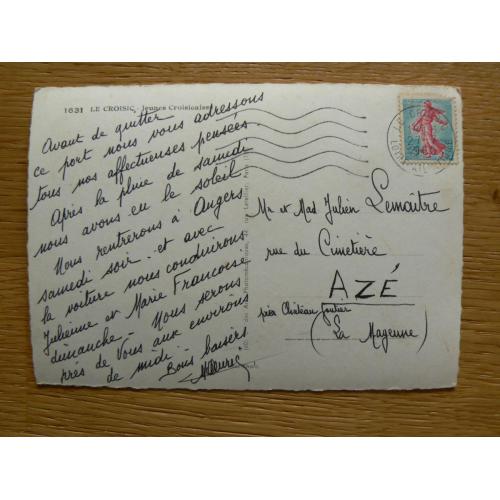 1631 LE CROISIC - Jeunes Croisicaises
Avant de quitter
ce port nous vous adressons
tous nos affectueuses pensées.
Après la pluie de samedi
nous avons eu le soleil
Nous rentrerons à Angers
samedi soir et avec
la voiture nous conduirons
Julienne et Marie Françoise
dimanche. Nous serons
près de Vous aux environs
de midi. Bons baisers
Mr et Mad Julien Lemaître
rue du Cimetière
AZÉ
près Château Gontier
(La Mayenne)